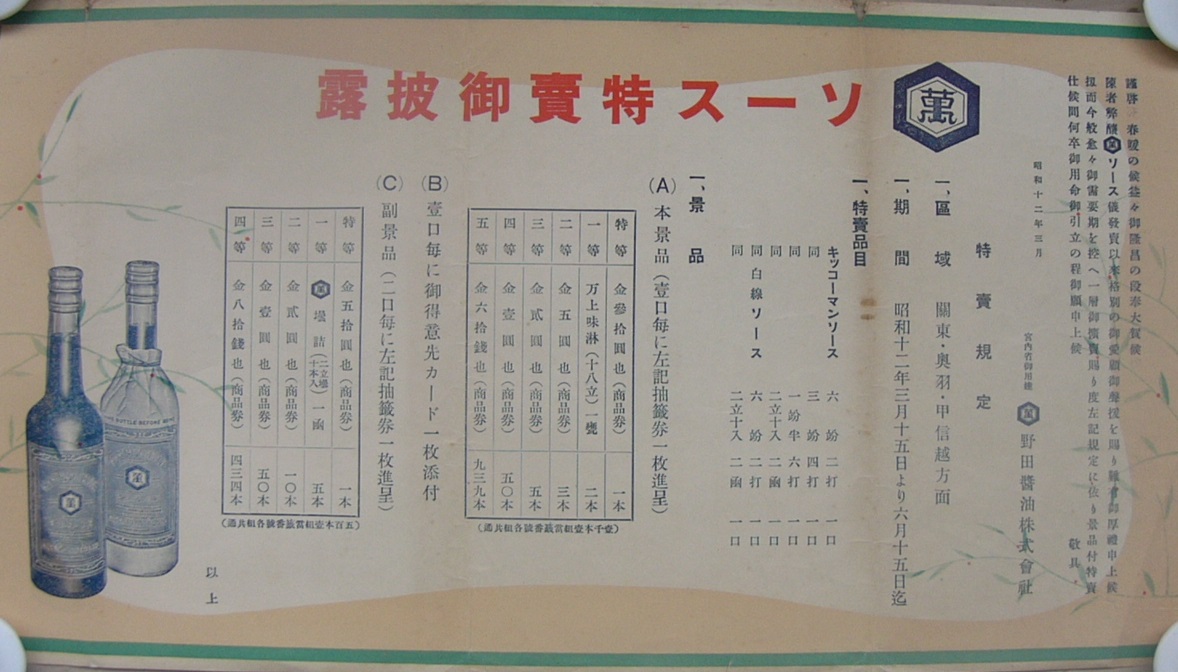 謹啓 春暖の候益々御隆昌の段奉大賀候
陳者弊醸 萬 ソース儀發賣以來格別の御愛顧御聲援を賜り難有御厚禮申上候
扨而今般愈々御需要期を控へ一層御擴賣賜り度左記規定に依り景品付特賣
仕候間何卒御用命御引立の程御願申上候
敬具
昭和十二年三月
宮内省御用達 萬 野田醬油株式會社
萬
ソース特賣御披露
特賣規定
一、區域 關東・奥羽・甲信越方面
一、期間 昭和十二年三月十五日より六月十五日迄
一、特賣品目
キッコーマンソース 六 㚎 二打 一口
同 三 㚎 四打 一口
同 一㚎半 六打 一口
同 二立十入 二凾 一口
同 白線ソース 六 㚎 二打 一口
同 二立十入 二凾 一口
一、景品
(A) 本景品(壹口毎に左記抽籤券一枚進呈)
特等 金參拾圓也(商品券) 一本
一等 万上味淋(十八立)一甕 二本
二等 金五圓也(商品券) 三本
三等 金貳圓也(商品券) 五本
四等 金壹圓也(商品券) 五〇本
五等 金六拾錢也(商品券) 九三九本
(壹千本壹組當籤番號各組共通)
(B) 壹口毎に御得意先カード一枚添付
(C) 副景品(二口毎に左記抽籤券一枚進呈)
特等 金五拾圓也(商品券) 一本
一等 萬 壜詰(二立壜十本入)一凾 五本
二等 金貳圓也(商品券) 一〇本
三等 金壹圓也(商品券) 五〇本
四等 金八拾錢也(商品券) 四三四本
(五百本壹組當籤番號各組共通)
以上
萬
萬